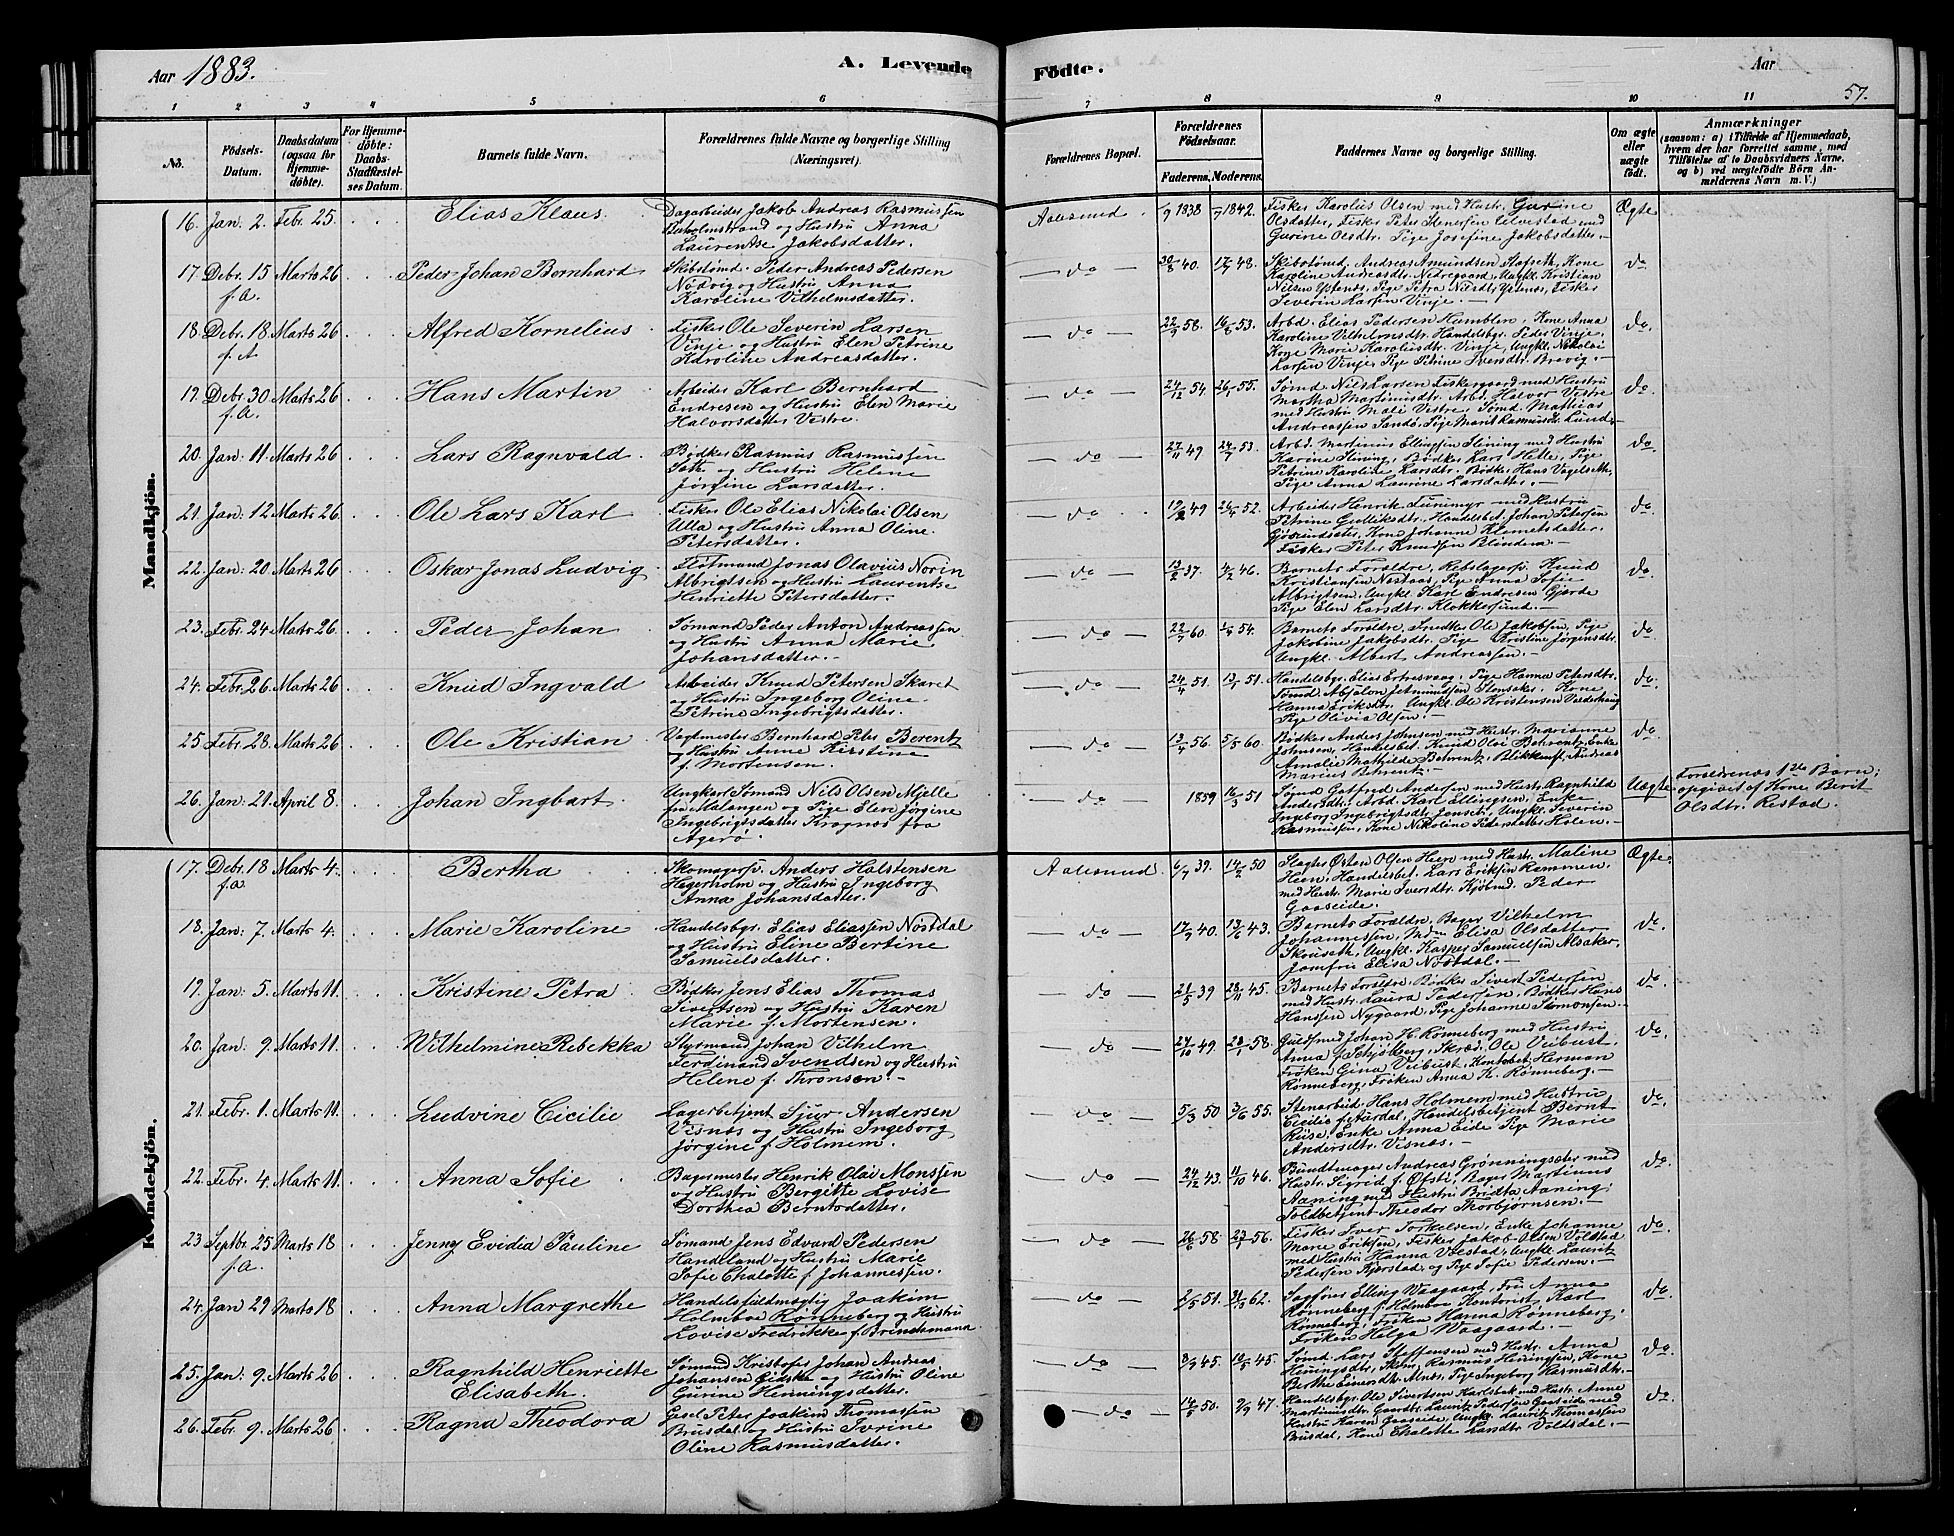 Aar 1883.
A. Levende Födte.
Aar
57.
1 2 3 4 5 6 7 8 9 10 11
No.
Födsels-
Datum.
Daabsdatum
(ogsaa for
Hjemme-
döbte).
For Hjemme-
döbte:
Daabs-
Stadfæstel-
ses Datum.
Barnets fulde Navn.
Forældrenes fulde Navne og borgerlige Stilling
(Næringsvei).
Forældrenes Bopæl.
Forældrenes
Födselsaar.
Faderens. Moderens.
Faddernes Navne og borgerlige Stilling.
Om ægte
eller
uægte
födt.
Anmærkninger
(saasom: a) i Tilfælde af Hjemmedaab,
hvem der har forrettet samme, med
Tilföielse af to Daabsvidners Navne,
og b) ved uægtefödte Börn An-
melderens Navn m. V.)
Mandkjön.
16. Jan. 2. Febr. 25. Elias Klaus.
Dagarbeider Jakob Andreas Rasmussen
Baholmstrand og Hustru Anna
Laurentse Jakobsdatter.
Aalesund. 1/9 1838 1842.
Fisker Karolius Olsen med Hustr. Gurine
Olsdatter, Fisker Peter Stenersen Ulvestad med
Gurine Olsdtr. Pige Josefine Jakobsdatter.
Ægte
17. Debr. 15 Marts 26 Peder Johan Bernhard
f.A.
Skibstømd. Peder Andreas Pedersen
Nødvig og Hustru Anna
Karoline Vilhelmsdatter.
do 30/8 40. 17/7 48.
Skibstømd. Andreas Amundsen Slapseth, Kone
Karoline Andreasdtr. Nedregaard, Ungkl. Kristian
Nilsen Ystenes, Pige Petra Nilsdtr. Ystenes, Fisker
Severin Larsen Vinje.
do
18. Debr. 18 Marts 26 Alfred Kornelius
f.A
Fisker Ole Severin Larsen
Vinje og Hustru Elen Petrine
Karoline Andreasdatter.
do 22/9 58. 16/6 53.
Arbd. Elias Pedersen Humblen, Kone Anna
Karoline Vilhelmsdtr. Handelsbgr. Peder Vinje,
Kone Marie Karoliusdtr. Vinje, Ungkl. Nikolai
Larsen Vinje, Pige Petrine Iversdtr. Brevig.
do.
19. Debr. 30 Marts 26 Hans Martin
f.A.
Arbeider Karl Bernhard
Endresen og Hustru Elen Marie
Halvorsdatter Vestre.
do 24/12 54. 26/1 55.
Sømd. Nils Larsen Fiskergaard med Hustru
Martha Martinusdtr. Arbd. Halvor Vestre
med Hustru Mali Vestre, Sømd. Mathias
Andreassen Sandø, Pige Marit Rasmusdtr. Lund.
do
20. Jan: 11. Marts 26 Lars Ragnvald.
Bødker Rasmus Rasmussen
Satt og Hustru Helene
Jørgine Larsdatter.
do 27/11 49 24/7 53.
Arbd. Martinus Ellingsen Slining med Hustru
Karine Slining, Bødker Lars Helle, Pige
Petrine Karoline Larsdtr. Bødker Hans Vegelseth,
Pige Anna Laurine Larsdatter.
do
21. Jan: 12. Marts 26. Ole Lars Karl
Fisker Ole Elias Nikolai Olsen
Ulla og Hustru Anna Oline
Petersdatter.
do 19/2 49 26/7 52.
Arbeider Henrik Turinmyr med Hustru
Petrine Gulliksdtr., Handelsbet. Johan Petersen
Gjøsundsæter, Kone Johanne Klemetsdatter.
Fisker Peter Knudsen Blindem.
do
22. Jan: 20. Marts 26 Oskar Jonas Ludvig.
Fløtmand Jonas Olavius Norin
Albrigtsen og Hustru Laurentse
Henriette Petersdatter.
do 13/2 37. 4/2 46.
Barnets Forældre, Rebslagersv. Knud
Kristiansen Nestaas, Pige Anna Sofie
Albrigtsen, Ungkl. Karl Endresen Gjerde
Pige Elen Larsdtr. Klokkersund.
do
23. Febr. 24. Marts 26. Peder Johan
Sømand Peder Anton Andreassen
og Hustru Anna Marie
Johansdatter.
do 22/7 60. 1/9 54.
Barnets Forældre, Snedker Ole Jakobsen, Pige
Jakobine Jakobsdtr. Pige Kristine Jørgensdtr.
Ungkl. Albert Andreassen.
do
24. Febr. 26. Marts 26 Knud Ingvald
Arbeider Knud Petersen Skaret
og Hustru Ingeborg Oline
Petrine Ingebrigtsdatter.
do 24/4 51. 13/1 51.
Handelsbgr. Elias Ertnesvaag, Pige Hanna Petersdtr.
Tømd. Absalon Jetmundsen Stensaker, Kone
Hanna Eriksdtr. Ungkl. Ole Kristensen Valderhaug
Pige Olivia Olsen.
do
25 Febr. 28. Marts 26. Ole Kristian
Vagtmester Bernhard Peter Berentz
og Hustru Anne Kirstine
f. Mortensen.
do 13/4 56. 5/5 60.
Bødker Anders Johnsen med Hustr. Marianne
Johnsen, Handelsbet. Knud Olai Behrentz, Enke
Amalie Mathilde Behrentz, Blikkensl. Andreas
Marius Behrentz.
do
26. Jan: 21. April 8. Johan Ingbart.
Ungkar Sømand Nils Olsen Mjelle
fra Malangen og Pige Elen Jørgine
Ingebrigtsdatter Kragnes fra
Agerø.
do 1859 16/3 51
Sømd. Gotfred Andersen med Hustr. Ragnhild
Andersdtr. Arbd. Karl Ellingsen, Enke
Ingeborg Ingebrigtsdtr. Jensen, Ungkl. Severin
Rasmussen, Kone Nikoline Pedersdatter Holen.
Uægte
Forældrenes 1ste Barn;
opgivet af Kone Berit
Olsdtr. Restad.
Kvindekjön.
17. Debr. 18 Marts 4. Bertha
f.A
Skomagersv. Anders Halstensen
Hagerholm og Hustru Ingeborg
Anna Johansdatter.
Aalesund. 6/7 39. 14/2 50
Slagter Østen Olsen Heen med Hustr. Maline
Heen, Handelsbet. Lars Eriksen Remmen
med Hustr. Marie Iversdtr. Kjøbmd. Peder
Gaaseide.
Ægte
18. Jan: 7. Marts 4. Marie Karoline
Handelsbgr. Elias Eliassen Nøstdal
og Hustru Eline Bertine
Samuelsdatter.
do 17/9 40. 13/6 43.
Barnets Forældre, Bager Vilhelm
Johannessen, Mdm Elisa Olsdatter
Skouseth, Ungkl. Kasper Samuelsen Alsaker,
Jomfru Elisa Nøstdal.
do.
19. Jan: 5. Marts 11. Kristine Petra
Bødker Jens Elias Thomas
Sivertsen og Hustru Karen
Marie f. Mortensen.
do 21/5 39 28/11 45.
Barnets Forældre, Bødker Sivert Pedersen
med Hustr. Laura Pedersen, Bødker Hans
Hanssen Nygaard, Pige Johanne Simonsen.
do
20. Jan: 9. Marts 11. Wilhelmine Rebekka
Styrmand Johan Vilhelm
Ferdinand Svendsen og Hustru
Helene f. Thronsen.
do 27/10 49. 28/1 58.
Guldsmed Johan H. Rønneberg med Hustru
Anna f. Schjølberg, Skræd. Ole Veibust,
Frøken Gina Veibust, Kontorbet. Herman
Rønneberg, Frøken Anna K. Rønneberg.
do
21. Febr. 1. Marts 11. Ludvine Cicilie
Lagerbetjent Sjur Andersen
Visnæs og Hustru Ingeborg
Jørgine f. Holmem.
do 5/3 50 3/6 55.
Stenarbeid. Hans Holmem med Hustru
Cecilie f. Aurdal, Handelsbetjent Bernt
Riise, Enke Anna Eide, Pige Marie
Andersdtr. Visnæs.
do
22. Febr. 4. Marts 11. Anna Sofie
Bagermester Henrik Olai Monssen
og Hustru Bergitte Lovise
Dorthea Berntsdatter.
do 24/12 43. 11/10 46.
Bundtmager Andreas Grønningsæter med
Hustr. Sigrid f. Øfsti, Bager Martinus
Aaning med Hustru Bridta Aaning,
Toldbetjent Theodor Thorbjørnsen.
do
23 Septbr. 25 Marts 18 Jenny Evidia Pauline
f.A.
Sømand Jens Edvard Pedersen
Handeland og Hustru Marie
Sofie Chalotte f. Johannessen.
do 26/6 58. 27/1 56.
Fisker Iver Torkelsen, Enke Johanne
Marie Eriksen, Fisker Jakob Olsen Volstad
med Hustru Hanna Volstad, Ungkl. Laurits
Pedersen Kjørstad, og Pige Sofie Pedersen.
do
24. Jan 29 Marts 18 Anna Margrethe
Handelsfuldmægtig Joakim
Holmboe Rønneberg og Hustru
Lovise Fredrikke f. Brinchmann.
do 2/5 51. 31/10 62.
Sagfører Elling Waagaard, Fru Anna
Rønneberg f. Holmboe, Kontorist Karl
Rønneberg, Frøken Hanna Rønneberg.
Frøken Helga Waagaard.
do.
25. Jan: 9. Marts 26 Ragnhild Henriette
Elisabeth.
Sømand Kristofer Johan Andreas
Johansen Gidske og Hustru Oline
Gurine Henningsdatter.
do 3/9 45. 10/5 45.
Sømd. Lars Steffensen med Hustr. Anna
Henningsdtr., Skom. Rasmus Henningsen, Kone
Berthe Einersdtr. Alnes, Pige Ingeborg Rasmusdtr.
do.
26. Febr. 9. Marts 26 Ragna Theodora
Losel Peter Joakim Thomassen
Brusdal og Hustru Iverine
Oline Rasmusdatter.
do 14/5 50. 9/9 47.
Handelsbgr. Ole Sivertsen Karlsbak med Hustr. Anne
Martinusdtr. Gaardbr. Laurits Pedersen Gaaseide med
Hustru Karen Gaaseide, Ungkl. Laurits Thomassen
Brusdal, Kone Chalotte Larsdtr. Voldsdal.
do